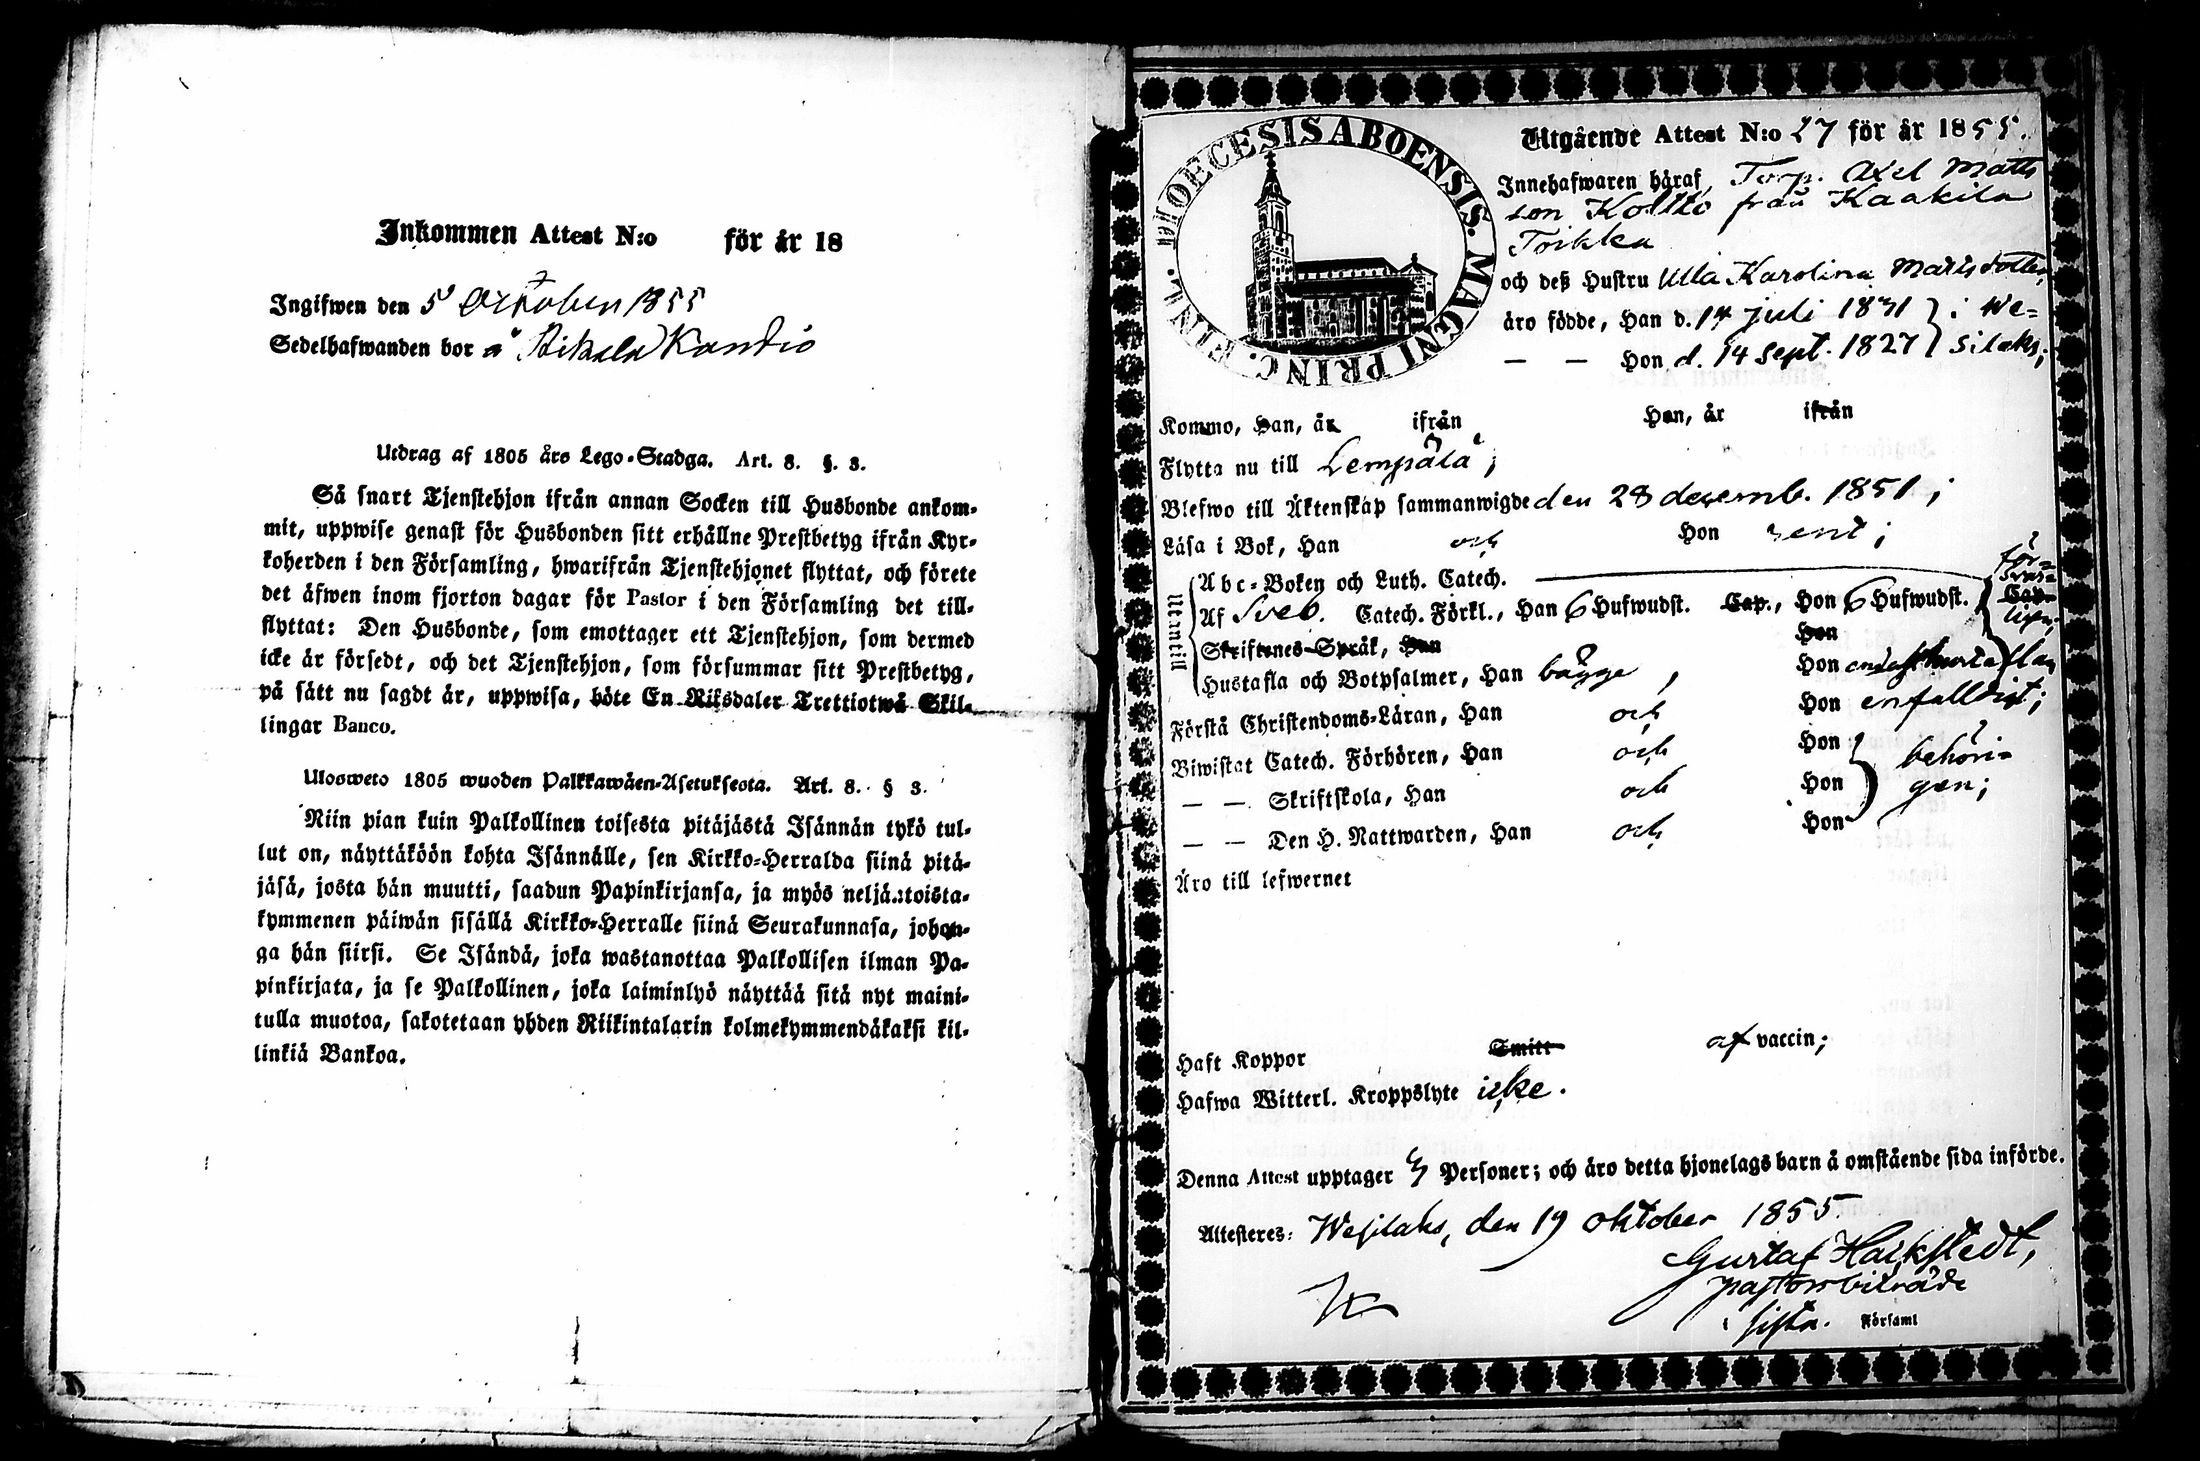 Inkommen Attest N:o för år 18
Ingifwen den 5 October 1855
Sedelhafwanden bor å
Utdrag af 1805 års Lego-Stadga. Art. 8. §. 3.
Så snart Tjenstehjon ifrån annan Socken till Husbonde ankom-
mit, uppwise genast för Husbonden sitt erhållne Prestbetyg ifrån Kyr-
koherden i den Församling, hwarifrån Tjenstehjonet flyttat, och förete
det äfwen inom fjorton dagar för Pastor i den Församling det till-
flyttat: Den Husbonde, som emottager ett Tjenstehjon, som dermed
icke är försedt, och det Tjenstehjon, som försummar sitt Prestbetyg,
på sätt nu sagdt är, uppwisa, böte En Riksdaler Trettiotwå Skil-
lingar Banco.
Ulosweto 1805 wuoden Palkkawäen-Asetuksesta. Art. 8. § 3.
Niin pian kuin Palkollinen toisesta pitäjästä Isännän tykö tul-
lut on, näyttäköön kohta Isännälle, sen Kirkko-Herralda siinä pitä-
jäsä, josta hän muutti, saadun Papinkirjansa, ja myös neljäntoista-
kymmenen päiwän sisällä Kirkko-Herralle siinä Seurakunnasa, johon-
ga hän siirsi. Se Isändä, joka wastanottaa Palkollisen ilman Pa-
pinkirjata, ja se Palkollinen, joka laiminlyö näyttää sitä nyt maini-
tulla muotoa, sakotetaan yhden Riikintalarin kolmekymmendäkaksi kil-
linkiä Bankoa.
DIOECESIS ABOENSIS. MAGNI PRINC. FINL.
Utgående Attest N:o 27 för år 1855.
Innehafwaren häraf, Torp. Axel Matts
son Koltto från Kaakila
Toikka
och deß Hustru Ulla Karolina Mattsdotter,
äro födde, Han d. 14 juli 1831 } i We=
— — Hon d. 14 Sept. 1827 } silaks;
Kommo, Han, år ifrån Hon, år ifrån
Flytta nu till Lempälä;
Blefwo till Äktenskap sammanwigde den 28 decemb. 1851;
Läsa i Bok, Han och Hon rent;
Utantill
Abc-Boken och Luth. Catech.
Af Sveb. Catech. Förkl., Han 6 Hufwudst. Cap., Hon 6 Hufwudst. Cap.
för=
svar=
lign;
Skriftenes Språk, Han Hon
Hustafla och Botpsalmer, Han bägge, Hon endast hustaflan
Förstå Christendoms-Läran, Han och Hon enfalldigt;
Biwistat Catech. Förhören, Han och Hon } behöri=
— — Skriftskola, Han och Hon } gen;
— — Den H. Nattwarden, Han och Hon
Äro till lefwernet
Haft Koppor Smitt af vaccin;
Hafwa Witterl. Kroppslyte icke.
Denna Attest upptager 3 Personer; och äro detta hjonelags barn å omstående sida införde.
Attesteres: Wesilaks, den 19 oktober 1855.
Gustaf Hackstedt,
pastorsbiträde
i sista. Förſaml